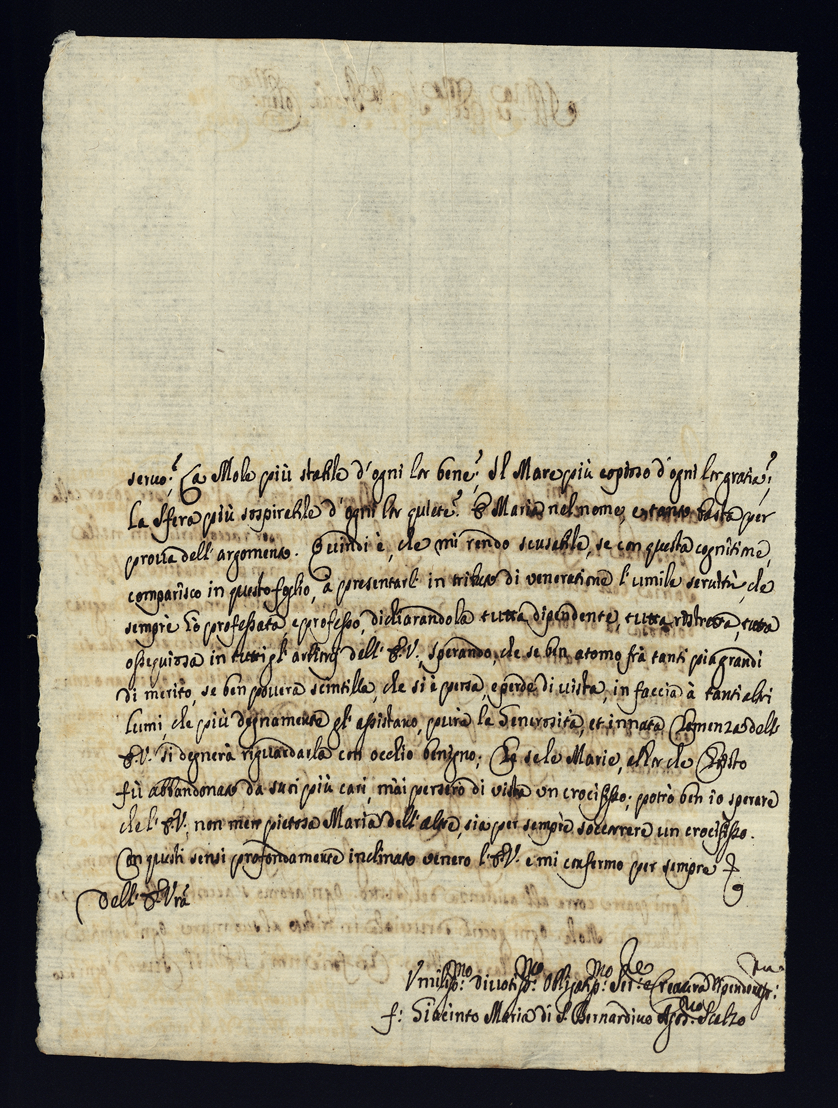 seruo? La Mole più stabile d'ogni lor bene? Il Mare più copioso d'ogni lor gratia?
La sfera più sospirabile d'ogni lor quiete? È Maria nel nome, e tanto basta per
proua dell'argomento. Quindi è, che mi rendo scusabile, se con questa cognitione,
comparisco in questo foglio, à presentarli in tributo di veneratione l'umile seruitù, che
sempre hò professata, e professo, dichiarandola tutta dipendente, tutta ristretta, tutta
ossequiosa in tutti gl'arbitrij dell'E.V. sperando, che se ben atomo frà tanti più grandi
di merito, se ben pouera scintilla, che si è persa, e perde di vista, in faccia à tanti altri
lumi, che più degnamente gl'assistano, pure la Generosità, et innata Clemenza dell'
E.V. si degnerà riguardarla con occhio benigno; Che se le Marie, allor che Christo
fù abbandonato da suoi più cari, mài persero di vista un crocifisso; potrò ben io sperare
che l'E.V. non men pietosa Maria dell'altre, sia per sempre soccorrere un crocifisso.
Con questi sensi profondamente inclinato venero l'E.V. e mi confermo per sempre
Dell'E. Vrã
Vmiliss.mo Diuotiss.mo Obligatiss.mo Ser.re e Creatura
f: Giacinto Maria di S. Bernardino Agos.no Scalzo